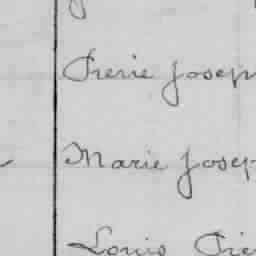 Pierre Josep
Marie Josep
Louis Pie